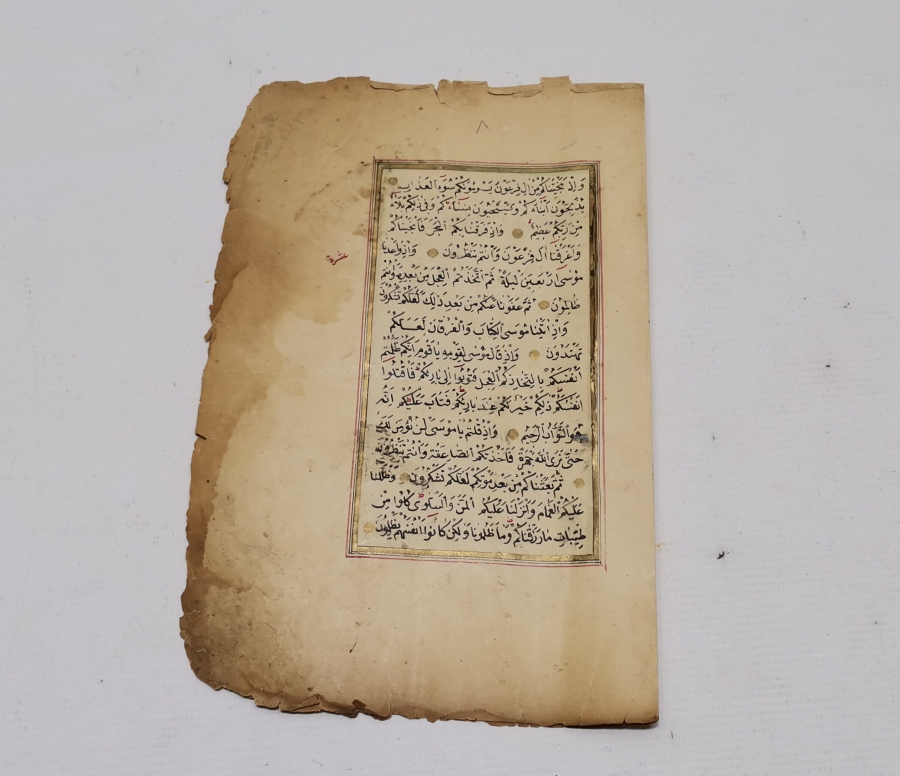 ٨
وَاِذْ نَجَّيْنَاكُمْ مِنْ اٰلِ فِرْعَوْنَ يَسُومُونَكُمْ سُوٓءَ الْعَذَابِ
يُذَبِّحُونَ اَبْنَاءَكُمْ وَيَسْتَحْيُونَ نِسَاءَكُمْ وَفِى ذٰلِكُمْ بَلَاءٌ
مِنْ رَبِّكُمْ عَظِيمٌ وَاِذْ فَرَقْنَا بِكُمُ الْبَحْرَ فَاَنْجَيْنَاكُمْ
وَاَغْرَقْنَا اٰلَ فِرْعَوْنَ وَاَنْتُمْ تَنْظُرُونَ وَاِذْ وٰعَدْنَا
عشرة
مُوسٰى اَرْبَعِينَ لَيْلَةً ثُمَّ اتَّخَذْتُمُ الْعِجْلَ مِنْ بَعْدِهِ وَاَنْتُمْ
ظَالِمُونَ ثُمَّ عَفَوْنَا عَنْكُمْ مِنْ بَعْدِ ذٰلِكَ لَعَلَّكُمْ تَشْكُرُونَ
وَاِذْ اٰتَيْنَا مُوسَى الْكِتَابَ وَالْفُرْقَانَ لَعَلَّكُمْ
تَهْتَدُونَ وَاِذْ قَالَ مُوسٰى لِقَوْمِهِ يَا قَوْمِ اِنَّكُمْ ظَلَمْتُمْ
اَنْفُسَكُمْ بِاتِّخَاذِكُمُ الْعِجْلَ فَتُوبُوا اِلٰى بَارِئِكُمْ فَاقْتُلُوا
اَنْفُسَكُمْ ذٰلِكُمْ خَيْرٌ لَكُمْ عِنْدَ بَارِئِكُمْ فَتَابَ عَلَيْكُمْ اِنَّهُ
هُوَ التَّوَّابُ الرَّحِيمُ وَاِذْ قُلْتُمْ يَا مُوسٰى لَنْ نُؤْمِنَ لَكَ
حَتّٰى نَرَى اللّٰهَ جَهْرَةً فَاَخَذَتْكُمُ الصَّاعِقَةُ وَاَنْتُمْ تَنْظُرُونَ
ثُمَّ بَعَثْنَاكُمْ مِنْ بَعْدِ مَوْتِكُمْ لَعَلَّكُمْ تَشْكُرُونَ وَظَلَّلْنَا
عَلَيْكُمُ الْغَمَامَ وَاَنْزَلْنَا عَلَيْكُمُ الْمَنَّ وَالسَّلْوٰى كُلُوا مِنْ
طَيِّبَاتِ مَا رَزَقْنَاكُمْ وَمَا ظَلَمُونَا وَلٰكِنْ كَانُوا اَنْفُسَهُمْ يَظْلِمُونَ